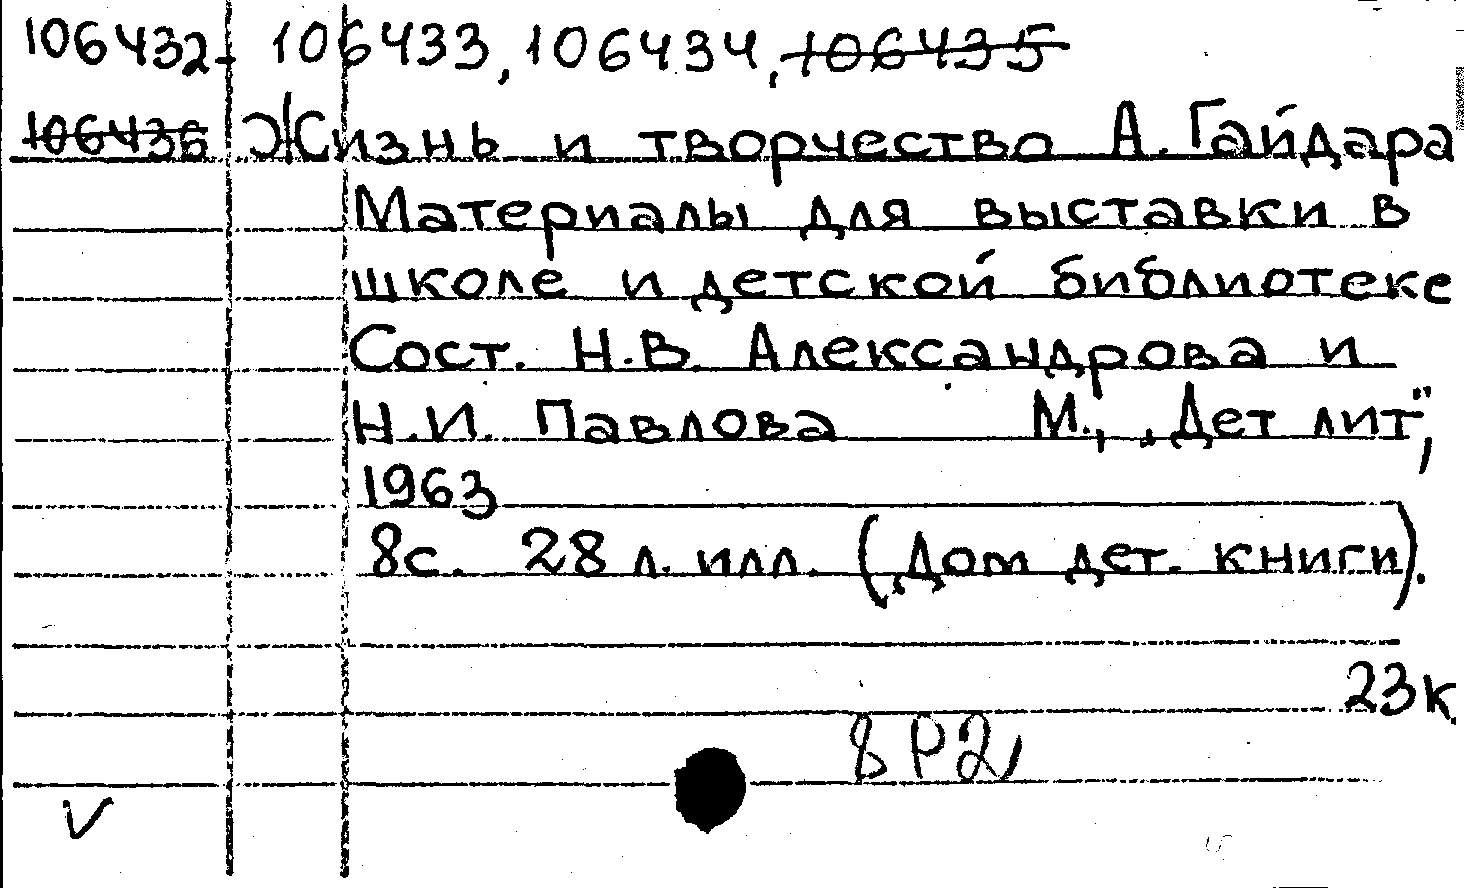 106432, 106433, 106434, 106435
106436 Жизнь и творчество А. Гайдара
Материалы для выставки в
школе и детской библиотеке
Сост. Н.В. Александрова и
Н.И. Павлова М., „Дет лит",
1963
8с. 28 л. илл. (Дом дет. книги).
23к.
8Р2